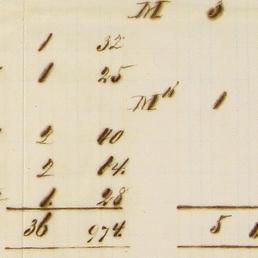 M 3
1 32
1 25
M" 1
2 40
2 14
1 28
36 974 5